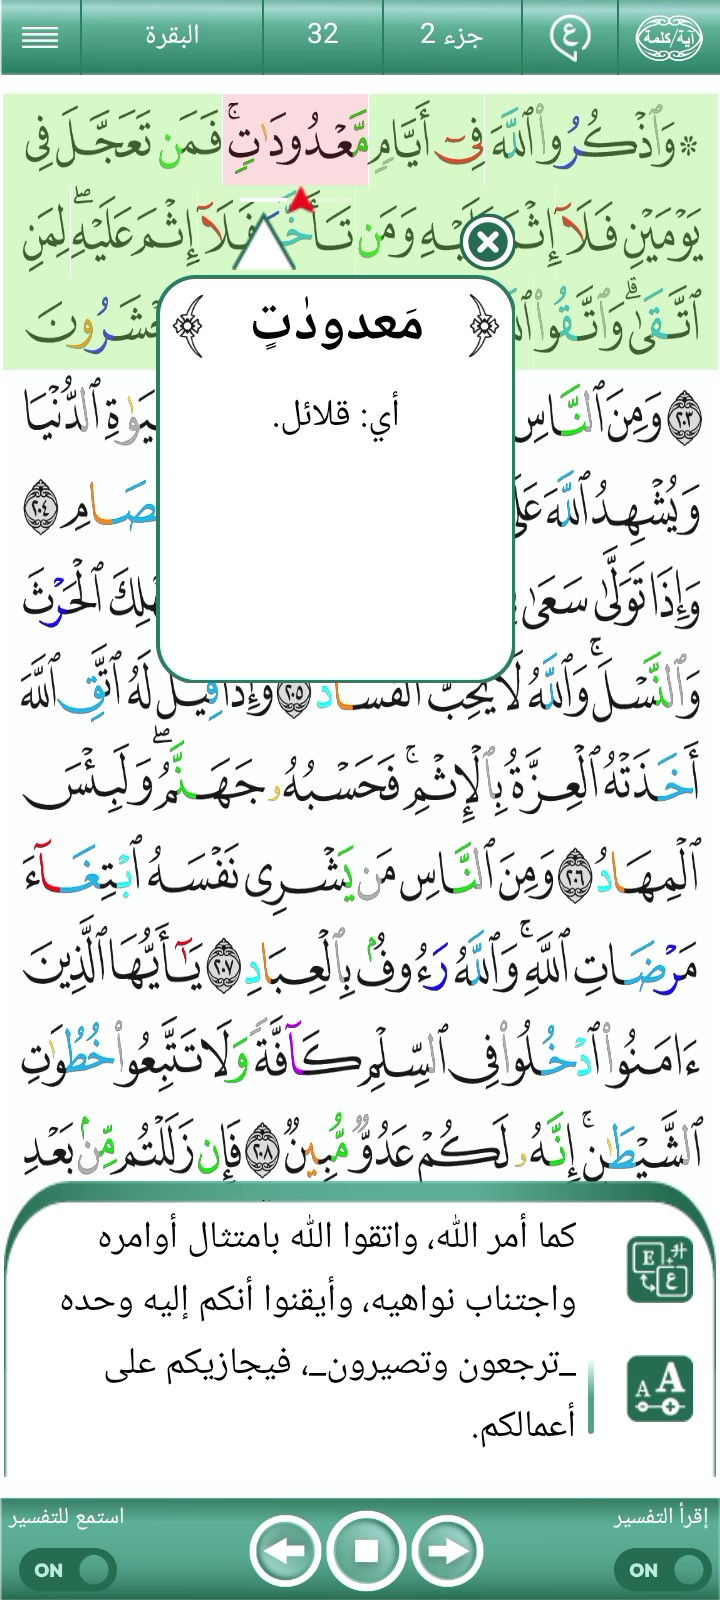 آية/كلمة
ع
جزء 2
32
البقرة
۞ وَٱذْكُرُوا۟ ٱللَّهَ فِىٓ أَيَّامٍ مَّعْدُودَٰتٍۚ فَمَن تَعَجَّلَ فِى
يَوْمَيْنِ فَلَآ إِثْمَ عَلَيْهِ وَمَن تَأَخَّرَ فَلَآ إِثْمَ عَلَيْهِۖ لِمَنِ
ٱتَّقَىٰۗ وَٱتَّقُوا۟ تُحْشَرُونَ
مَعدودٰتٍ
أي: قلائل.
٢٠٣ وَمِنَ ٱلنَّاسِ ٱلدُّنْيَا
وَيُشْهِدُ ٱللَّهَ عَلَىٰ ٱلْخِصَامِ ٢٠٤
وَإِذَا تَوَلَّىٰ سَعَىٰ وَيُهْلِكَ ٱلْحَرْثَ
وَٱلنَّسْلَۚ وَٱللَّهُ لَا يُحِبُّ ٱلْفَسَادَ ٢٠٥ وَإِذَا قِيلَ لَهُ ٱتَّقِ ٱللَّهَ
أَخَذَتْهُ ٱلْعِزَّةُ بِٱلْإِثْمِۚ فَحَسْبُهُۥ جَهَنَّمُۖ وَلَبِئْسَ
ٱلْمِهَادُ ٢٠٦ وَمِنَ ٱلنَّاسِ مَن يَشْرِى نَفْسَهُ ٱبْتِغَآءَ
مَرْضَاتِ ٱللَّهِۚ وَٱللَّهُ رَءُوفٌۢ بِٱلْعِبَادِ ٢٠٧ يَٰٓأَيُّهَا ٱلَّذِينَ
ءَامَنُوا۟ ٱدْخُلُوا۟ فِى ٱلسِّلْمِ كَآفَّةً وَلَا تَتَّبِعُوا۟ خُطُوَٰتِ
ٱلشَّيْطَٰنِۚ إِنَّهُۥ لَكُمْ عَدُوٌّ مُّبِينٌ ٢٠٨ فَإِن زَلَلْتُم مِّنۢ بَعْدِ
كما أمر الله، واتقوا الله بامتثال أوامره
واجتناب نواهيه، وأيقنوا أنكم إليه وحده
_ترجعون وتصيرون_، فيجازيكم على
أعمالكم.
E
ع
A A
إقرأ التفسير
استمع للتفسير
ON
ON